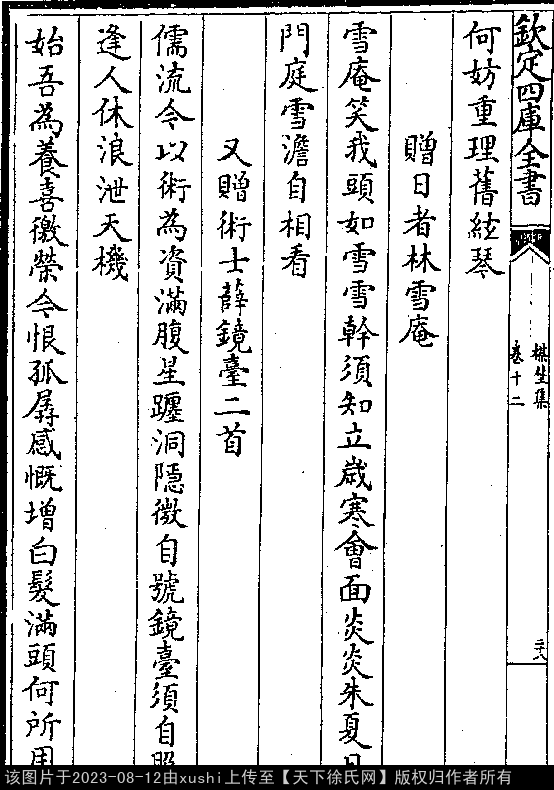 欽定四庫全書
楳埜集
卷十二
何妨重理舊絃琴
贈日者林雪庵
雪庵笑我頭如雪雪幹須知立歲寒會面炎炎朱夏日
門庭雪澹自相看
又贈術士薛鏡臺二首
儒流今以術為資滿腹星躔洞隱微自號鏡臺須自照
逢人休浪泄天機
始吾為養喜徼榮今恨孤孱感慨增白髮滿頭何所用
该图片于2023-08-12由xushi上传至【天下徐氏网】版权归作者所有